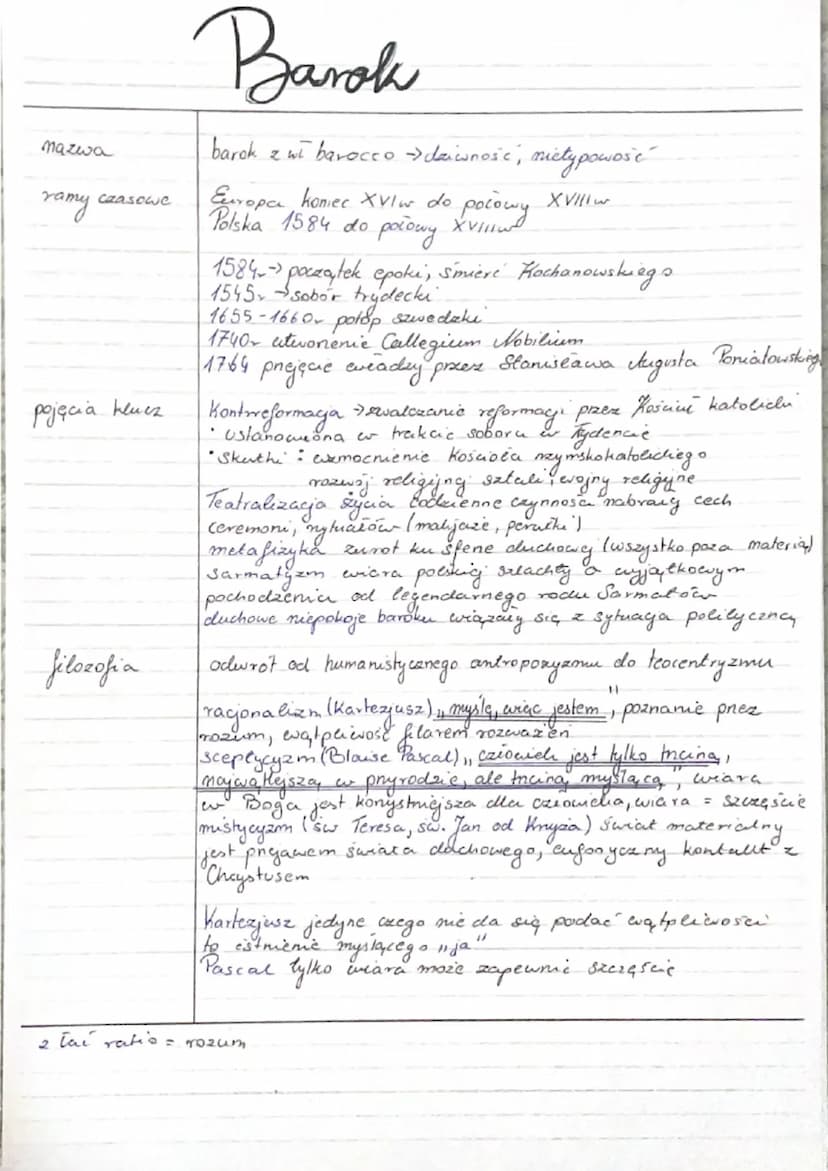 Barok
nazwa
barok z wł barocco → dziwność, nietypowość
ramy czasowe
Europa koniec XVIw do połowy XVIIIw
Polska 1584 do połowy XVIIIw
1584r → początek epoki, śmierć Kochanowskiego
1545r → sobór trydecki
1655-1660r potop szwedzki
1740r utworzenie Collegium Nobilium
1764 przejęcie władzy przez Stanisława Augusta Poniatowskieg
pojęcia klucz
Kontrreformacja → zwalczanie reformacji przez Kościół katolicki
• ustanowiona w trakcie soboru w Trydencie
• Skutki : wzmocnienie Kościoła rzymskokatolickiego
rozwój religijnej sztuki, wojny religijne
Teatralizacja życia codzienne czynności nabrały cech
ceremoni, rytuałów (makijaże, peruki)
metafizyka zwrot ku sferze duchowej (wszystko poza materią)
sarmatyzm wiara polskiej szlachty o wyjątkowym
pochodzeniu od legendarnego rodu Sarmatów
duchowe niepokoje baroku wiązały się z sytuacją polityczną
filozofia
odwrót od humanistycznego antropozyzmu do teocentryzmu
racjonalizm (Kartezjusz) „myślę, więc jestem", poznanie przez
rozum, wątpliwość filarem rozważeń
sceptycyzm (Blaise Pascal) „człowiek jest tylko trzciną,
najwątlejszą w przyrodzie, ale trzciną myślącą", wiara
w Boga jest korzystniejsza dla człowieka, wiara = szczęście
mistycyzm (św Teresa, św. Jan od Krzyża) świat materialny
jest przejawem świata duchowego, kontakt z
Chrystusem
Kartezjusz jedyne czego nie da się podać wątpliwości
to istnienie myślącego „ja"
Pascal tylko wiara może zapewnić szczęście
z łać ratio = rozum